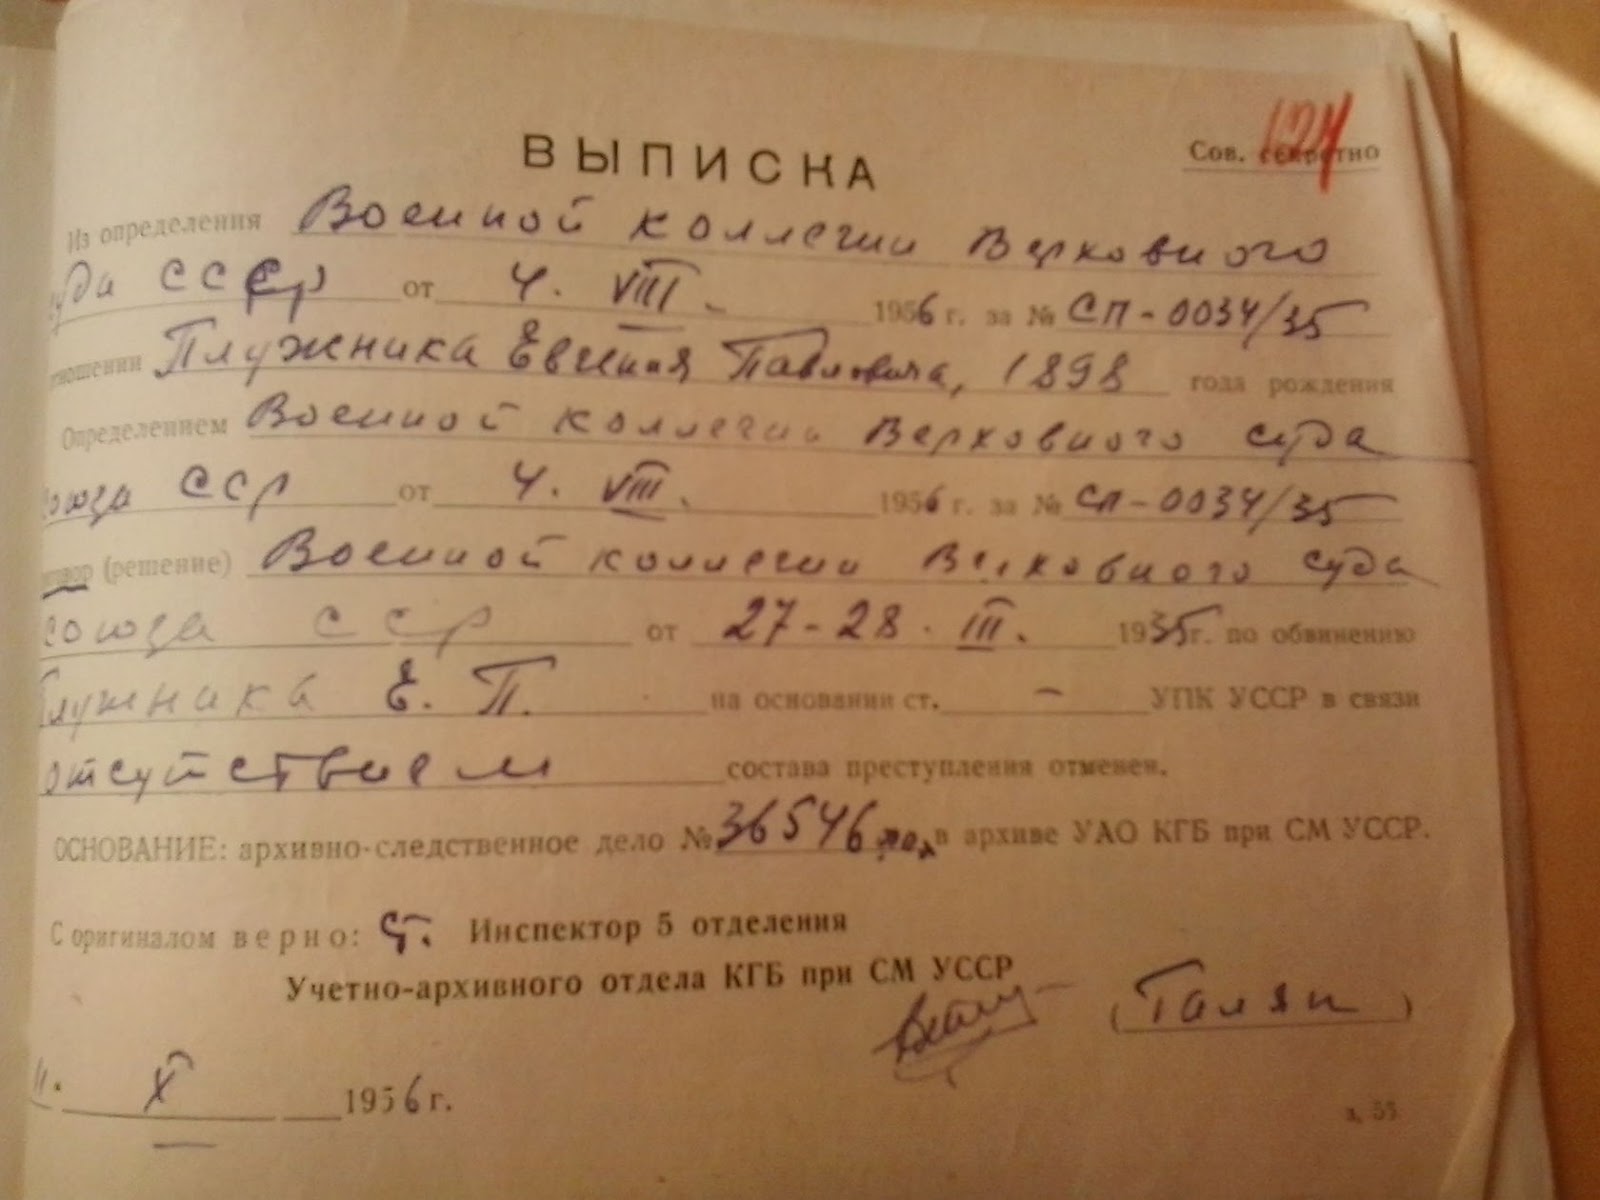 124
ВЫПИСКА
Сов. секретно
Из определения Военной коллегии Верховного
уда СССР от 4. VIII. 1956 г. за № СП-0034/35
тношении Плужника Евгения Павловича, 1898 года рождения
Определением Военной коллегии Верховного суда
союза ССР от 4. VIII. 1956 г. за № СП-0034/35
говор (решение) Военной коллегии Верховного суда
союза ССР от 27-28. III. 1935 г. по обвинению
Плужника Е. П. на основании ст. – УПК УССР в связи
отсутствием состава преступления отменен.
ОСНОВАНИЕ: архивно-следственное дело № 36546 в архиве УАО КГБ при СМ УССР.
С оригиналом верно: Ст. Инспектор 5 отделения
Учетно-архивного отдела КГБ при СМ УССР
(Галян)
X 1956 г.
з. 55